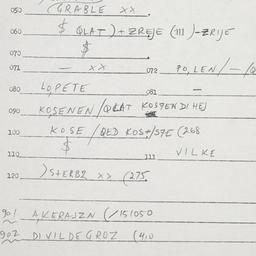 050 (GRABLE xx
060 $ QLAT) + ZREJE (111) - ZRIJE
070 $
071 — xx 072 PO,LEN/—/Q
080 LOPETE 081 —
090 KOSENEN/QLAT KOSTENDIHEJ
100 KOSE/QED KOST/STE (268
110 $ 111 VILKE
120 )STERBZ xx (275
901 A,KERAJZN (/151050
902 DIVILDEGROZ (4,0